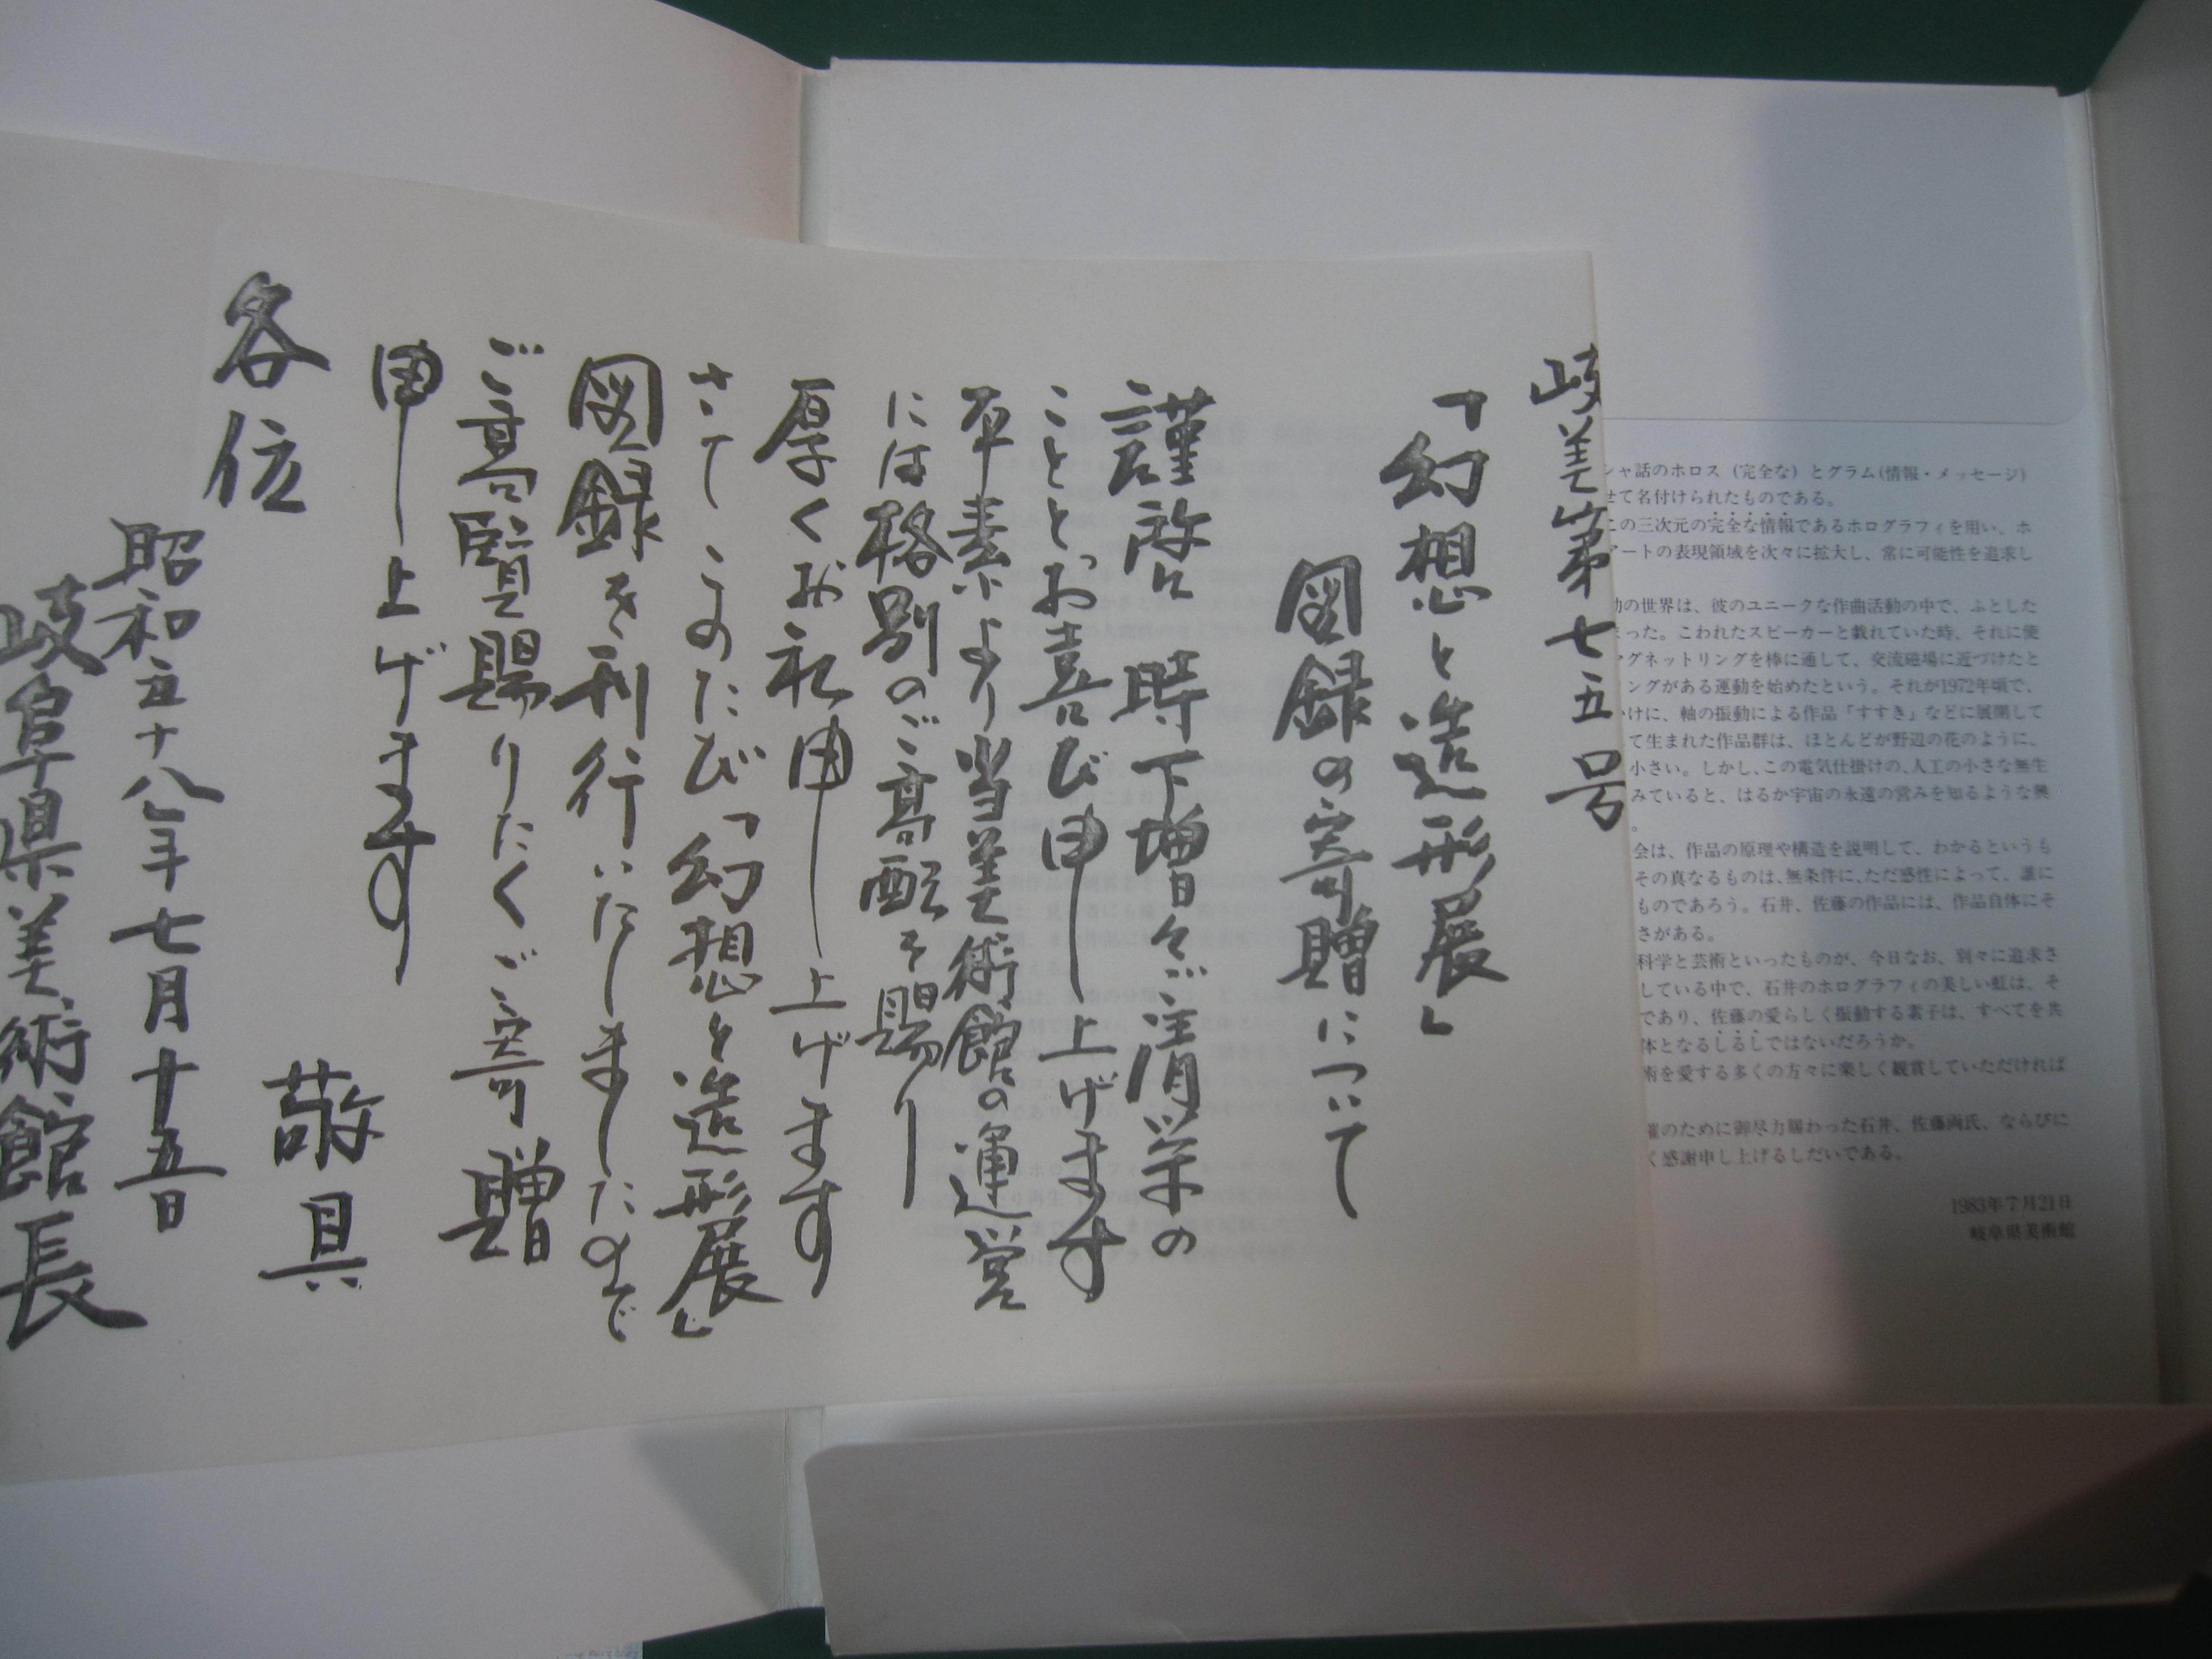 岐美第七五号
「幻想と造形展」
図録の寄贈について
謹啓 時下増々ご清栄の
こととお喜び申し上げます
平素より当美術館の運営
には格別のご高配を賜り
厚くお礼申し上げます
さてこのたび「幻想と造形展」
図録を刊行いたしましたので
ご高覧賜りたくご寄贈
申し上げます
敬具
各位
昭和五十八年七月十五日
岐阜県美術館長
シャ話のホロス（完全な）とグラム(情報・メッセージ)
せて名付けられたものである。
この三次元の完全な情報であるホログラフィを用い、ホ
アートの表現領域を次々に拡大し、常に可能性を追求し
の世界は、彼のユニークな作曲活動の中で、ふとした
まった。こわれたスピーカーと戯れていた時、それに使
マグネットリングを棒に通して、交流磁場に近づけたと
ングがある運動を始めたという。それが1972年頃で、
いけに、軸の振動による作品「すすき」などに展開して
て生まれた作品群は、ほとんどが野辺の花のように、
小さい。しかし、この電気仕掛けの、人工の小さな無生
みていると、はるか宇宙の永遠の営みを知るような興
。
会は、作品の原理や構造を説明して、わかるというも
その真なるものは、無条件に、ただ感性によって、誰に
ものであろう。石井、佐藤の作品には、作品自体にそ
さがある。
科学と芸術といったものが、今日なお、別々に追求さ
している中で、石井のホログラフィの美しい虹は、そ
であり、佐藤の愛らしく振動する素子は、すべてを共
体となるしるしではないだろうか。
術を愛する多くの方々に楽しく観賞していただければ
催のために御尽力賜わった石井、佐藤両氏、ならびに
く感謝申し上げるしだいである。
1983年7月21日
岐阜県美術館